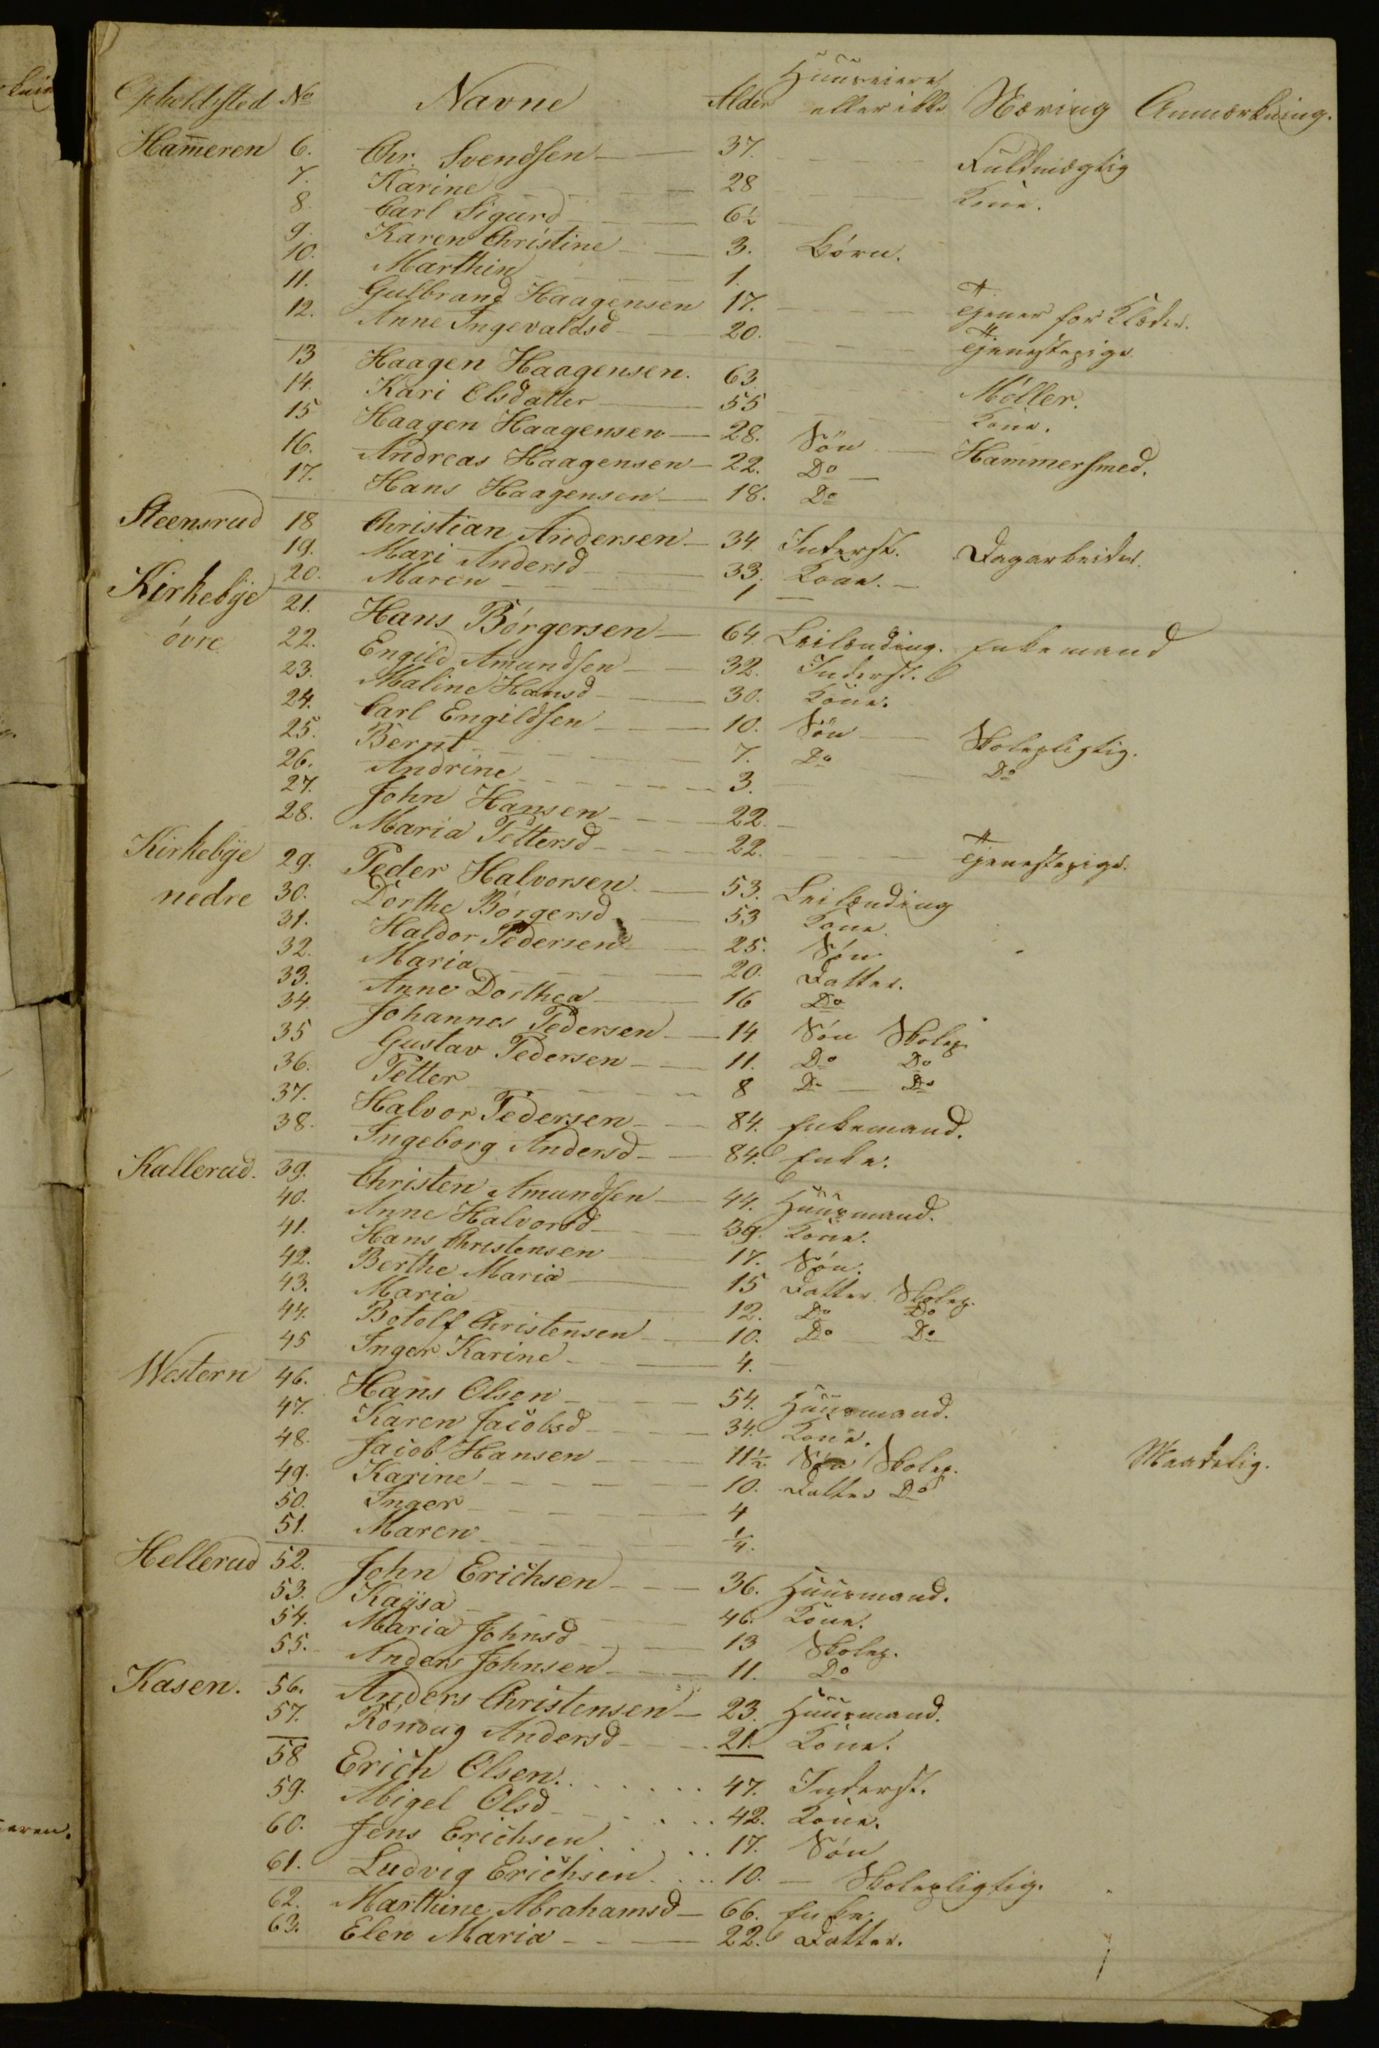 Opholdsted No Navne Alder Huuseiere eller ikke Næring Anmærkning.
Hammeren 6. Chr. Svendsen 37. Fuldmægtig
7. Karine 28 Kone.
8. Carl Sigurd 6½
9. Karen Christine 3. Börn.
10. Marthin 1.
11. Gulbrand Haagensen 17. Tjener for Klæder.
12. Anne Ingevaldsd 20. Tjenestepige
13 Haagen Haagensen. 63. Möller.
14. Kari Olsdatter 55 Kone.
15 Haagen Haagensen 28. Sön Hammersmed.
16. Andreas Haagensen 22. Do
17. Hans Haagensen 18. Do
Steensrud 18 Christian Andersen 34 Inderst. Dagarbeider
19. Mari Andersd 33. Kone.
20. Maren 1
Kirkebye 21. Hans Börgersen 64 Leilending. Enkemand
övre 22. Engild Amundsen 32. Inderst.
23. Maline Hansd 30. Kone.
24. Carl Engildsen 10. Sön Skolepligtig.
25. Bernt 7. Do Do
26. Andrine 3.
27. John Hansen 22.
28. Maria Pettersd 22. Tjenestepige.
Kirkebye 29. Peder Halvorsen 53. Leilænding
nedre 30. Dorthe Börgersd 53 Kone.
31. Haldor Pedersen 25. Sön.
32. Maria 20. Datter.
33. Anne Dorthea 16 Do
34 Johannes Pedersen 14 Sön Skolep.
35 Gustav Pedersen 11. Do Do
36. Petter 8 Do Do
37. Halvor Pedersen 84. Enkemand.
38. Ingeborg Andersd 84. Enke.
Kallerud. 39. Christen Amundsen 44. Huusmand.
40. Anne Halvorsd 39. Kone.
41. Hans Christensen 17. Sön.
42. Berthe Maria 15 Datter Skolep.
43. Maria 12. Do Do
44. Botolf Christensen 10. Do Do
45 Inger Karine 4.
Western 46. Hans Olsen 54. Huusmand.
47. Karen Jacobsd 34. Kone.
48. Jacob Hansen 11½. Sön Skolep. Maadelig.
49. Karine 10. Datter Do
50. Inger 4
51. Maren ¼.
Hellerud 52. John Erichsen 36. Huusmand.
53. Kaÿsa 46. Kone.
54. Maria Johnsd 13 Skolep.
55. Anders Johnsen 11. Do
Kasen. 56. Anders Christensen 23. Huusmand.
57. Röndug Andersd 21. Kone.
58 Erich Olsen. 47. Inderst.
59. Abigel Olsd 42. Kone.
60. Jens Erichsen 17. Sön
61. Ludvig Erichsen 10. Skolepligtig.
62. Marthine Abrahamsd 66. Enke.
63. Elen Maria 22. Datter.